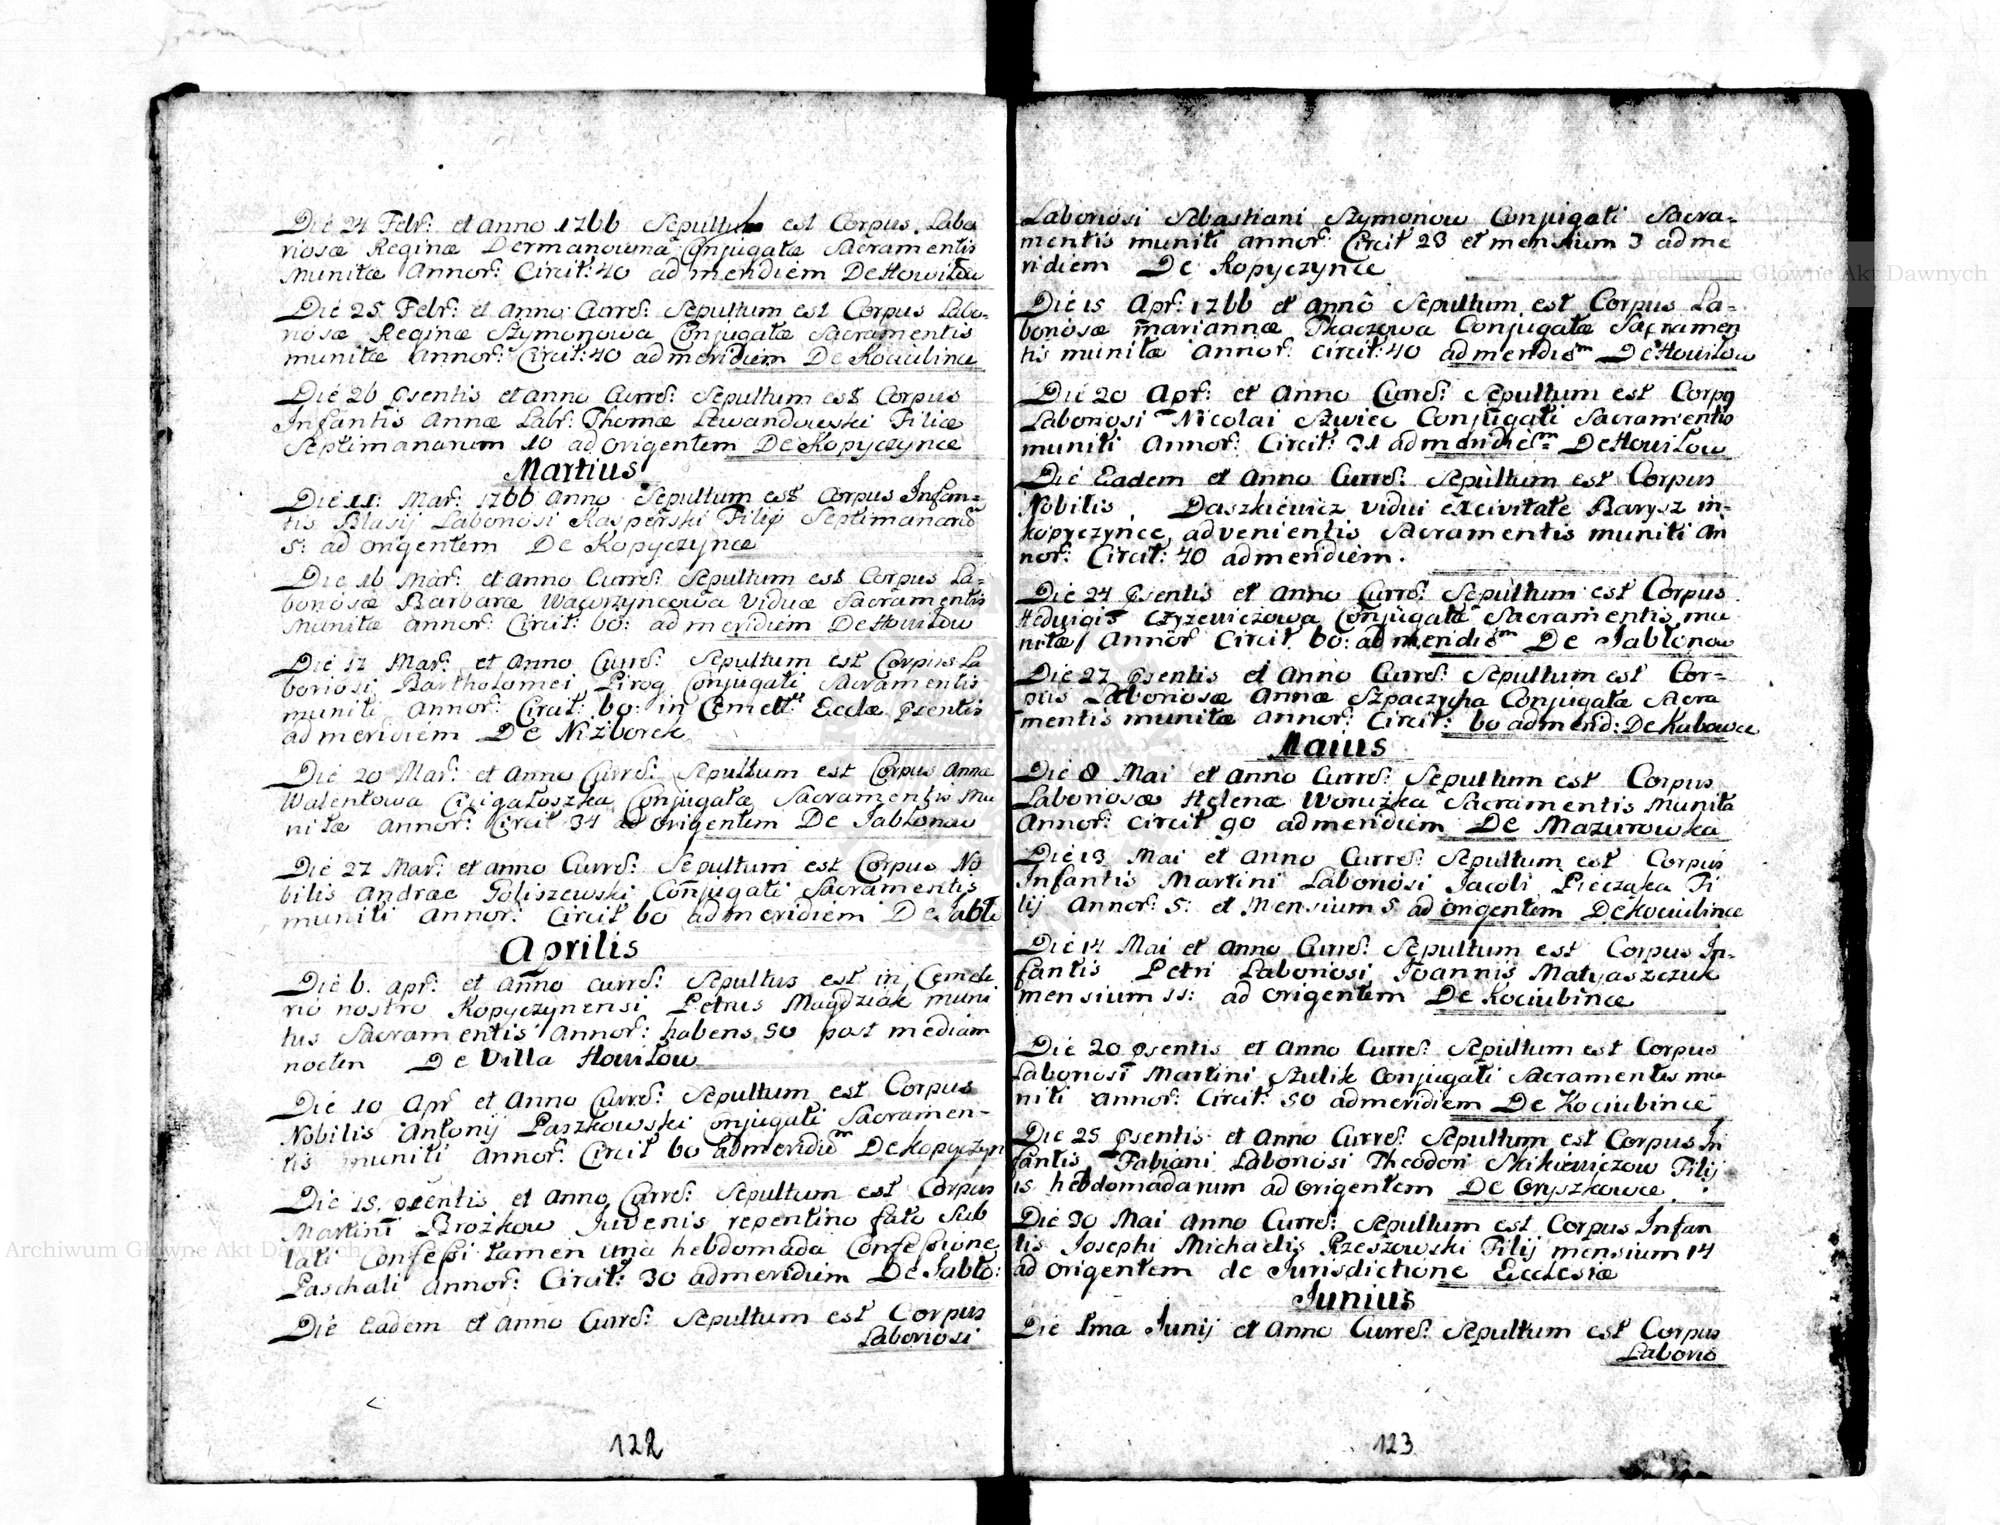 Die 24 Febr: et anno 1766 Sepultum est Corpus Labo
riosæ Reginæ Dermanowna Conjugatæ Sacramentis
Munitæ Annor: Circit: 40 ad meridiem De Howiłow
Die 25 Febr: et Anno Curre: Sepultum est Corpus Labo-
riosæ Reginæ Szymonowa Conjugatæ Sacramentis
munitæ Annor: Circit: 40 ad meridiem De Kociubince
Die 26 psentis et anno Curre: Sepultum est Corpus
Infantis Annæ Labr: Thomæ Lewandowski Filiæ
Septimanarum 10 ad Origentem De Kopyczynce
Martius
Die 11: Mar: 1766 Anno Sepultum est Corpus Infan-
tis Blasij Laboriosi Kasperski Filij Septimanarū
5: ad Origentem De Kopyczynce
Die 16 Mar: et Anno Curre: Sepultum est Corpus La-
boriosæ Barbaræ Wawrzyncowa Viduæ Sacramentis
Munitæ Annor: Circit: 60: ad meridiem De Howiłow
Die 17 Mar: et Anno Curre: Sepultum est Corpus La
boriosi Bartholomei Pirog Conjugati Sacramentis
muniti Annor: Circit: 60: in Cemett: Ecclæ psentis
ad meridiem De Niżborek
Die 20 Mar: et Anno Curre: Sepultum est Corpus Annæ
Walentowa Conjugatæ Sacramentis Mu
nitæ Annor: Circit 34 ad Origentem De Jabłonow
Die 27 Mar: et anno Curre: Sepultum est Corpus No
bilis Andræe Goliszewski Conjugati Sacramentis
muniti Annor: Circit 60 ad meridiem De Jabło
Aprilis
Die 6. apr: et Anno curre: Sepultus est in Cemete
rio nostro Kopyczynensi Petrus Magdziak muni
tus Sacramentis Annor: habens 50 post mediam
noctem De Villa Howiłow
Die 10 Apr et Anno Curre: Sepultum est Corpus
Nobilis Antonij Paszkowski Conjugati Sacramen-
tis muniti Annor: Circit 60 ad meridiem De Kopyczyn
Die 15. psentis et Anno Curre: Sepultum est Corpus
Martini Brożkow Juvenis repentino fato Sub
lati Confessi tamen una hebdomada Confessione
Paschali Annor: Circit: 30 ad meridiem De Jabło:
Die Eadem et Anno Curre: Sepultum est Corpus
Laboriosi
122
Laboriosi Sebastiani Szymonow Conjugati Sacra-
mentis muniti annor: Circit 23 et mensium 3 ad me
ridiem De Kopyczynce
Die 15 Apr: 1766 et Anno Sepultum est Corpus La-
boriosæ Mariannæ Tkaczowa Conjugatæ Sacramen
tis munitæ Annor: circit: 40 ad meridiem De Howiłow
Die 20 Apr: et Anno Curre: Sepultum est Corpus
Laboriosi Nicolai Szwiec Conjugati Sacramentis
muniti Annor: Circit: 31 ad meridiem De Howiłow
Die Eadem et Anno Curre: Sepultum est Corpus
Nobilis Daszkiewicz vidui ex civitate Barysz in
Kopyczynce advenientis Sacramentis muniti An
nor: Circit: 40 ad meridiem.
Die 24 psentis et Anno Curre: Sepultum est Corpus
Hedvigis Czyżewiczowa Conjugatæ Sacramentis mu
nitæ Annor Circit 60: ad meridiem De Jabłonow
Die 27 psentis et Anno Curre: Sepultum est Cor-
pus Laboriosæ Annæ Szpaczycha Conjugatæ Sacra
mentis munitæ Annor: Circit: 60 ad merid: De Kubowce
Maius
Die 8 Mai et Anno Curre: Sepultum est Corpus
Laboriosæ Helenæ Woruzka Sacramentis Munita
Annor: circit 90 ad meridiem De Mazurowka
Die 13 Mai et Anno Curre: Sepultum est Corpus
Infantis Martini Laboriosi Jacobi Piecząka Fi
lij Annor: 5: et Mensium 5 ad origentem De Kociubince
Die 14 Mai et Anno Curre: Sepultum est Corpus In-
fantis Petri Laboriosi Joannis Matyaszczuk
mensium 11: ad Origentem De Kociubince
Die 20 psentis et Anno Curre: Sepultum est Corpus
Laboriosi Martini Szulik Conjugati Sacramentis mu
niti Annor: Circit: 50 ad meridiem De Kociubince
Die 25 psentis et Anno Curre: Sepultum est Corpus In
fantis Fabiani Laboriosi Theodori Mikiewiczow Filij
15 hebdomadarum ad Origentem De Oryszkowce
Die 30 Mai Anno Curre: Sepultum est Corpus Infan
tis Josephi Michaelis Rzeszowski Filij mensium 14
ad Origentem de Jurisdictione Ecclesiæ
Junius
Die 1ma Junij et Anno Curre: Sepultum est Corpus
Laborio
123
Archiwum Główne Akt Dawnych
Archiwum Główne Akt Dawnych